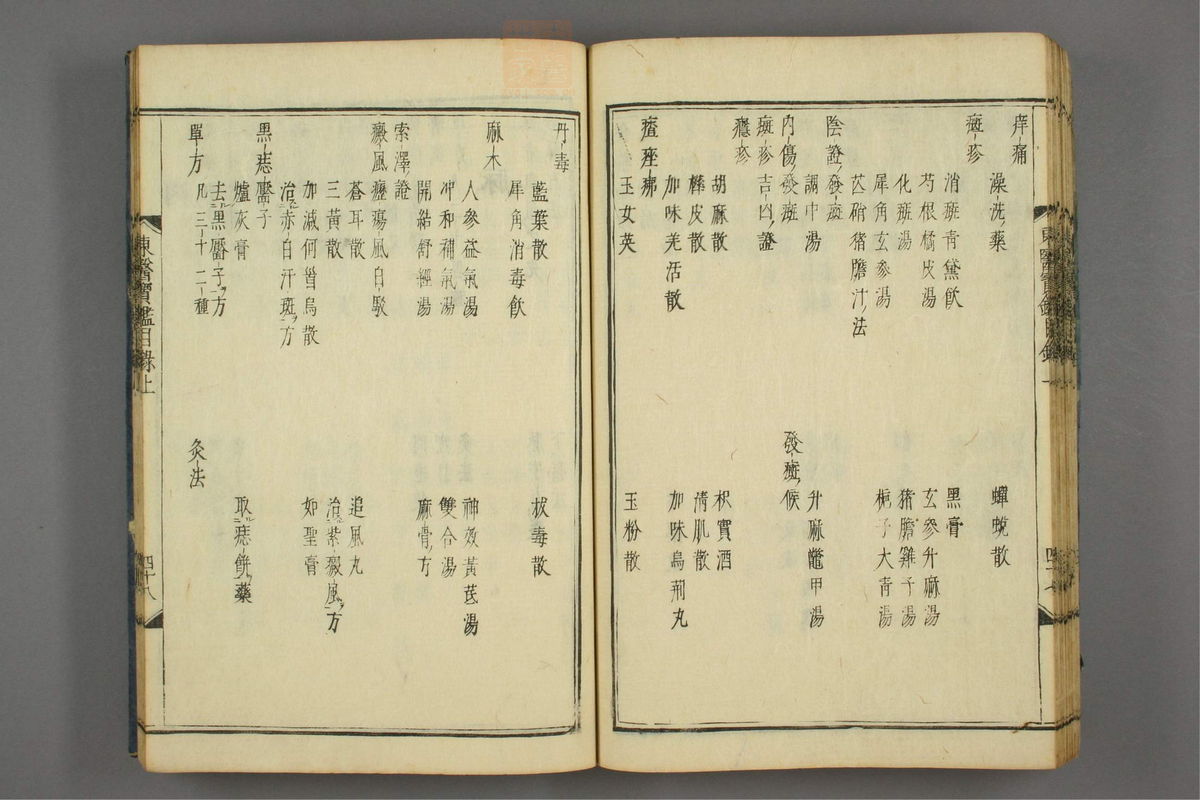 痒痛
澡洗藥
蟬蛻散
斑疹
消斑青黛飮
黑膏
芍根橘皮湯
玄參升麻湯
化斑湯
猪膽雞子湯
犀角玄參湯
梔子大青湯
猪膽汁ノ法
陰證發斑
調中湯
升麻鼈甲湯
内傷發斑
發斑ノ候
斑疹吉凶ノ證
癮疹
胡麻散
枳實酒
樺皮散
清肌散
加味羌活散
加味烏荊丸
痤疿
玉女英
玉粉散
丹毒
藍葉散
拔毒散
犀角消毒飮
麻木
人參益氣湯
神效黃芪湯
冲和補氣湯
雙合湯
開結舒經湯
麻骨ノ方
索澤ノ證
癜風癧瘍風白駁
蒼耳散
追風丸
三黃散
治紫癜風ノ方
加減何首烏散
如聖膏
治赤白汗斑ノ方
黑痣黶子
爐灰膏
取痣餅藥
去黑黶子ノ方
單方
凡三十二種
灸法
東醫寶鑑目錄上
四十八